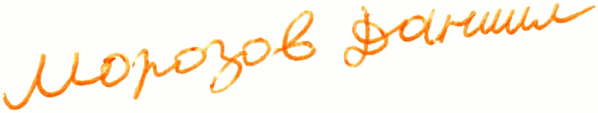 Морозов Даниил